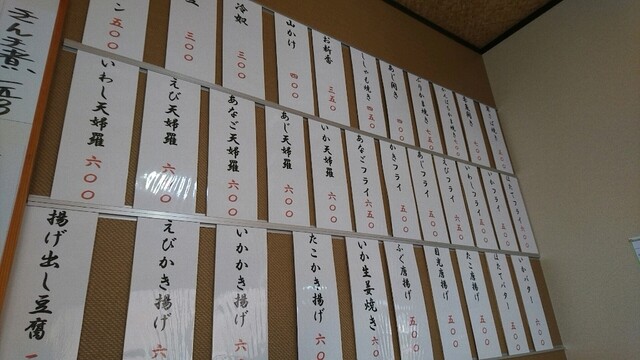 さんま煮 一五〇
ン 五〇〇
豆 三〇〇
冷奴 三〇〇
山かけ 四〇〇
お新香 三五〇
ししゃも焼き 四五〇
あじ開き 四〇〇
いわし天婦羅 六〇〇
えび天婦羅
あなご天婦羅 六〇〇
あじ天婦羅 六〇〇
いか天婦羅 六〇〇
あなごフライ 六五〇
かきフライ 五〇〇
あじフライ 五〇〇
えびフライ 六五〇
いわしフライ 五〇〇
いかフライ 五〇〇
ほたてフライ 六〇〇
揚げ出し豆腐
えびかき揚げ 六
いかかき揚げ 六
たこかき揚げ 六〇
いか生姜焼き 六〇
ふぐ唐揚げ 五〇〇
目光唐揚げ 五〇〇
たこ唐揚げ 五〇〇
ほたてバター 五〇〇
いかバター 六〇〇